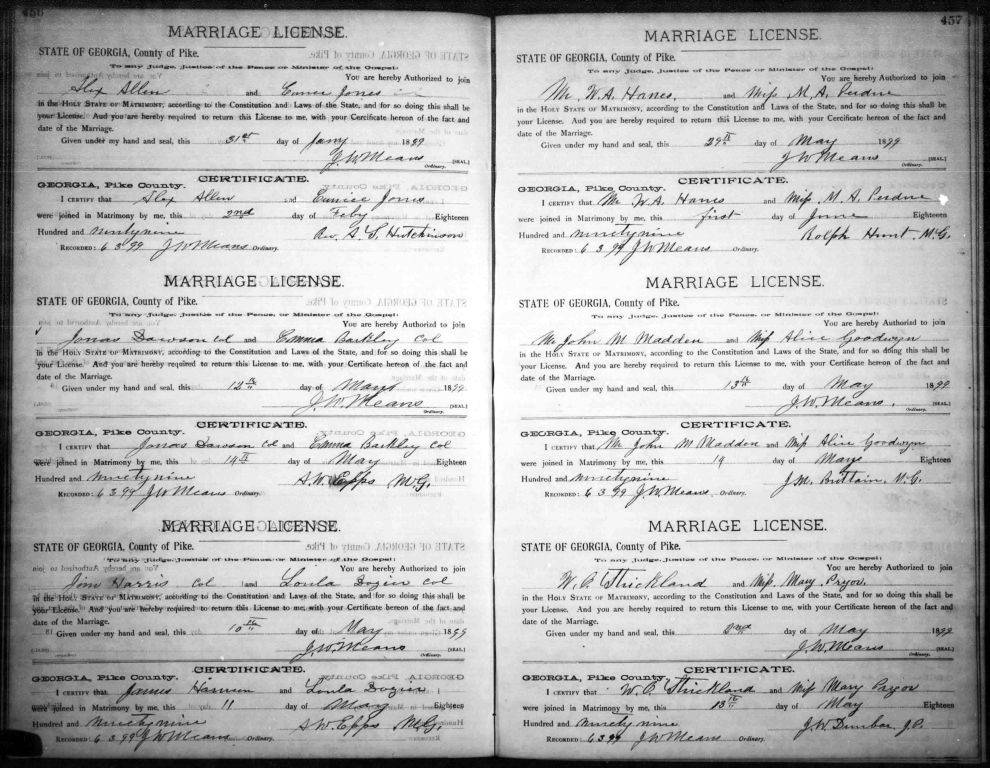 456
MARRIAGE LICENSE.
STATE OF GEORGIA, County of Pike.
To any Judge, Justice of the Peace or Minister of the Gospel:
You are hereby Authorized to join
Alex Allen and Eunice Jones
in the HOLY STATE OF MATRIMONY, according to the Constitution and Laws of the State, and for so doing this shall be
your License. And you are hereby required to return this License to me, with your Certificate hereof of the fact and
date of the Marriage.
Given under my hand and seal, this 31st day of Jany 1899
J.W. Means [SEAL.]
Ordinary.
CERTIFICATE.
GEORGIA, Pike County.
I CERTIFY that Alex Allen and Eunice Jones
were joined in Matrimony by me, this 2nd day of Feby Eighteen
Hundred and ninetynine Rev. A. S. Hutchinson
RECORDED: 6 3 99 J W Means Ordinary.
MARRIAGE LICENSE.
STATE OF GEORGIA, County of Pike.
To any Judge, Justice of the Peace, or Minister of the Gospel:
You are hereby Authorized to join
Jonas Dawson Col and Emma Barkley Col
in the HOLY STATE OF MATRIMONY, according to the Constitution and Laws of the State, and for so doing this shall be
your License. And you are hereby required to return this License to me, with your Certificate hereof of the fact and
date of the Marriage.
Given under my hand and seal, this 12th day of May 1899
J.W. Means [SEAL.]
Ordinary.
CERTIFICATE.
GEORGIA, Pike County.
I CERTIFY that Jonas Dawson Col and Emma Barkley Col
were joined in Matrimony by me, this 14th day of May Eighteen
Hundred and ninetynine S.W. Epps M.G.
RECORDED: 6 3 99 J W Means Ordinary.
MARRIAGE LICENSE.
STATE OF GEORGIA, County of Pike.
To any Judge, Justice of the Peace, or Minister of the Gospel:
You are hereby Authorized to join
Jim Harris Col and Loula Dozier Col
in the HOLY STATE OF MATRIMONY, according to the Constitution and Laws of the State, and for so doing this shall be
your License. And you are hereby required to return this License to me, with your Certificate hereof of the fact and
date of the Marriage.
Given under my hand and seal, this 10th day of May 1899
J.W. Means [SEAL.]
Ordinary.
CERTIFICATE.
GEORGIA, Pike County.
I CERTIFY that James and Loula Dozier
were joined in Matrimony by me, this 11 day of May Eighteen
Hundred and ninetynine S W Epps M.G.
RECORDED: 6 3 99 J W Means Ordinary.
457
MARRIAGE LICENSE.
STATE OF GEORGIA, County of Pike.
To any Judge, Justice of the Peace or Minister of the Gospel:
You are hereby Authorized to join
Mr. W.A. Hanes, and Miss M.A. Perdue
in the HOLY STATE OF MATRIMONY, according to the Constitution and Laws of the State, and for so doing this shall be
your License. And you are hereby required to return this License to me, with your Certificate hereof of the fact and
date of the Marriage.
Given under my hand and seal, this 29th day of May 1899
J W Means [SEAL.]
Ordinary.
CERTIFICATE.
GEORGIA, Pike County.
I CERTIFY that Mr. W.A. Hanes and Miss M.A. Perdue
were joined in Matrimony by me, this first day of June Eighteen
Hundred and ninetynine Rolph Hunt. M.G.
RECORDED: 6 3 99 J W Means Ordinary.
MARRIAGE LICENSE.
STATE OF GEORGIA, County of Pike.
To any Judge, Justice of the Peace, or Minister of the Gospel:
You are hereby Authorized to join
Mr John M Madden and Miss Alice Goodwyn
in the HOLY STATE OF MATRIMONY, according to the Constitution and Laws of the State, and for so doing this shall be
your License. And you are hereby required to return this License to me, with your Certificate hereof of the fact and
date of the Marriage.
Given under my hand and seal, this 13th day of May 1899
J.W. Means. [SEAL.]
Ordinary.
CERTIFICATE.
GEORGIA, Pike County.
I CERTIFY that Mr John M Madden and Miss Alice Goodwyn
were joined in Matrimony by me, this 19 day of May Eighteen
Hundred and ninetynine J.M. Brittain,
RECORDED: 6 3 99 J.W. Means Ordinary.
MARRIAGE LICENSE.
STATE OF GEORGIA, County of Pike.
To any Judge, Justice of the Peace, or Minister of the Gospel:
You are hereby Authorized to join
W.C. Strickland and Miss. Mary Pryor.
in the HOLY STATE OF MATRIMONY, according to the Constitution and Laws of the State, and for so doing this shall be
your License. And you are hereby required to return this License to me, with your Certificate hereof of the fact and
date of the Marriage.
Given under my hand and seal, this day of May 1899
J.W. Means [SEAL.]
Ordinary.
CERTIFICATE.
GEORGIA, Pike County.
I CERTIFY that W.C. Strickland and Miss Mary Pryor
were joined in Matrimony by me, this 18th day of May Eighteen
Hundred and ninetynine J.W. Dunbar J.P.
RECORDED: 6 3 99 J W Means Ordinary.